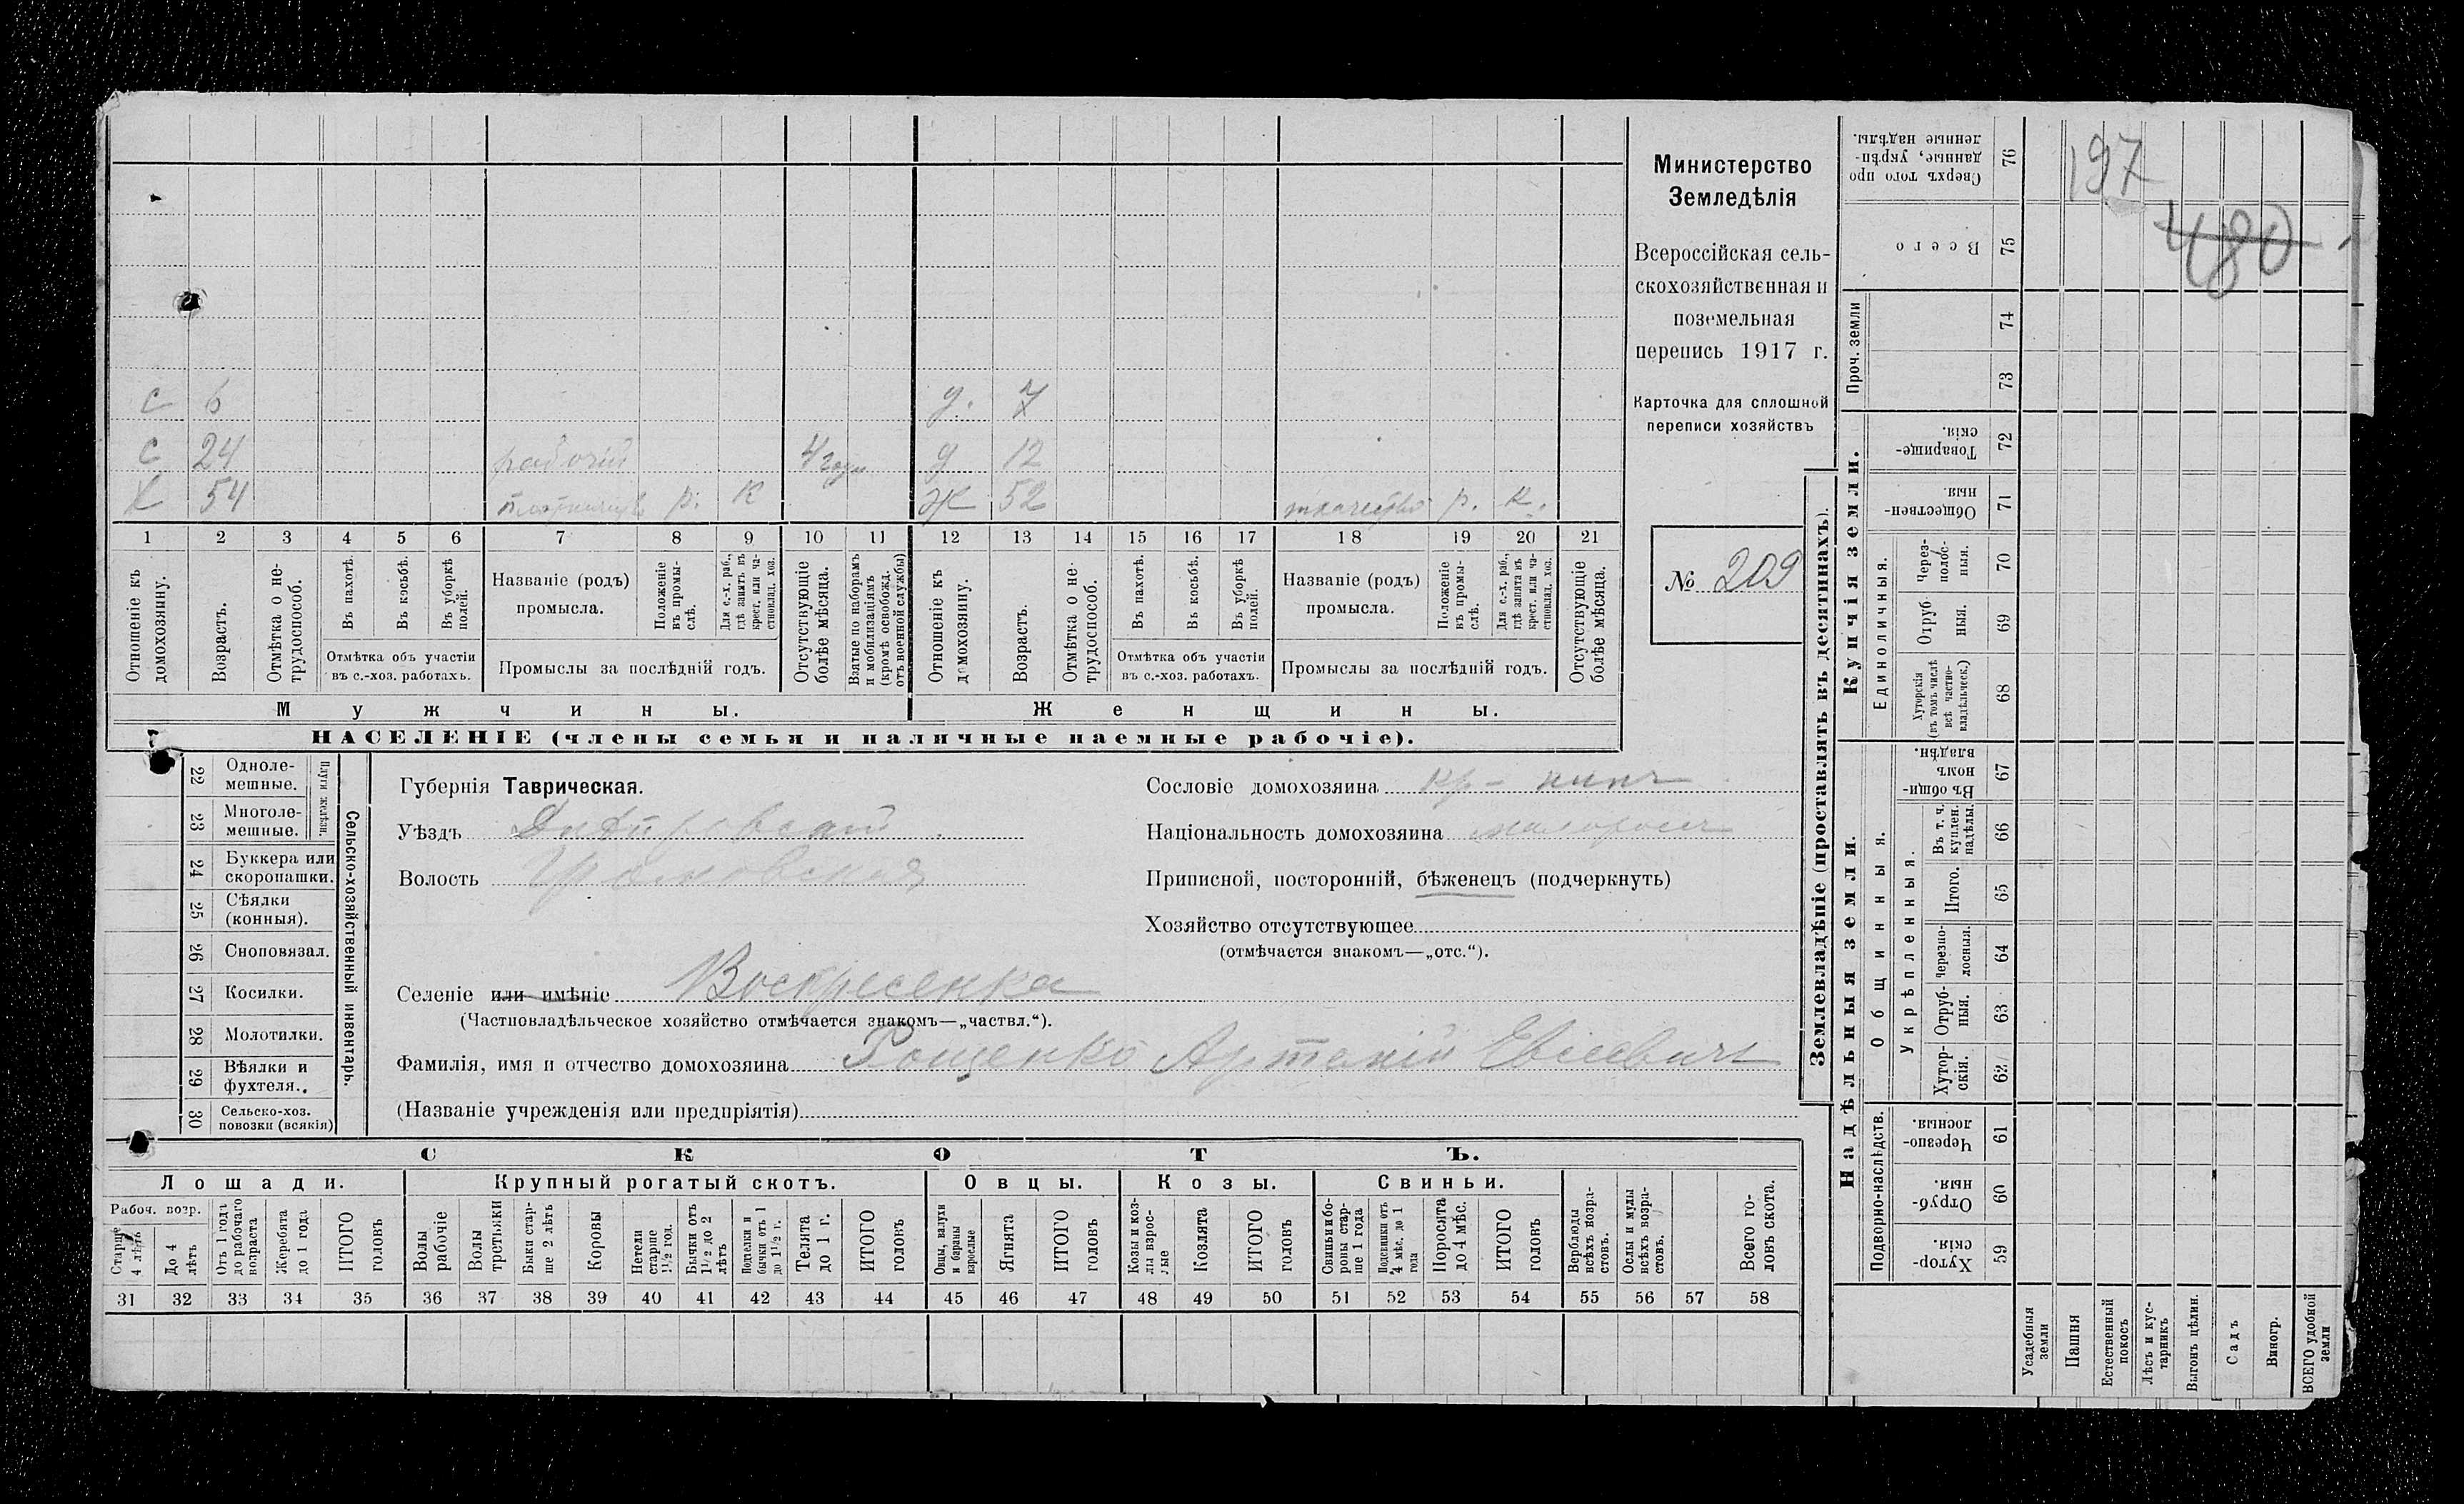 197
480
Министерство
Земледѣлія
Всероссійская сель-
скохозяйственная и
поземельная
перепись 1917 г.
Карточка для сплошной
переписи хозяйствъ
№ 209
с 6 д. 7
с 24 рабочій 4 года д 12
Х 54 р. К Ж 52 ткачество р. К.
1 2 3 4 5 6 7 8 9 10 11 12 13 14 15 16 17 18 19 20 21
Отношеніе къ домохозяину.
Возрастъ.
Отмѣтка о не-трудоспособ.
Въ пахотѣ.
Въ косьбѣ.
Въ уборкѣ полей.
Отмѣтка объ участіи
въ с.-хоз. работахъ.
Названіе (родъ)
промысла.
Положеніе въ промы-слѣ.
Для с.-х. раб., гдѣ занятъ въ крест. или ча-стновлад. хоз.
Промыслы за послѣдній годъ.
Отсутствующіе болѣе мѣсяца.
Взятые по наборамъ и мобилизаціямъ (кромѣ освобожд. отъ военной службы)
Отношеніе къ домохозяину.
Возрастъ.
Отмѣтка о не-трудоспособ.
Въ пахотѣ.
Въ косьбѣ.
Въ уборкѣ полей.
Отмѣтка объ участіи
въ с.-хоз. работахъ.
Названіе (родъ)
промысла.
Положеніе въ промы-слѣ.
Для с.-х. раб., гдѣ занята въ крест. или ча-стновлад. хоз.
Промыслы за послѣдній годъ.
Отсутствующіе болѣе мѣсяца.
Мужчины. Женщины.
НАСЕЛЕНІЕ (члены семьи и наличные наемные рабочіе).
Сельско-хозяйственный инвентарь.
Плуги желѣзн.
22 Одноле-мешные.
23 Многоле-мешные.
24 Буккера или скоропашки.
25 Сѣялки (конныя).
26 Сноповязал.
27 Косилки.
28 Молотилки.
29 Вѣялки и фухтеля.
30 Сельско-хоз. повозки (всякія)
Губернія Таврическая.
Уѣздъ Днѣпровскій
Волость
Селеніе или имѣніе Воскресенка
(Частновладѣльческое хозяйство отмѣчается знакомъ—„частвл.“).
Фамилія, имя и отчество домохозяина Рощенко Артемій Евсевичъ
(Названіе учрежденія или предпріятія)
Сословіе домохозяина кр-нинъ
Національность домохозяина малороссъ
Приписной, посторонній, бѣженецъ (подчеркнуть)
Хозяйство отсутствующее
(отмѣчается знакомъ—„отс.“).
СКОТЪ.
Лошади. Крупный рогатый скотъ. Овцы. Козы. Свиньи.
Рабоч. возр.
Старше 4 лѣтъ
До 4 лѣтъ
Отъ 1 года до рабочаго возраста
Жеребята до 1 года
ИТОГО головъ
Волы рабочіе
Волы третьяки
Быки стар-ше 2 лѣтъ
Коровы
Нетели старше 1½ год.
Бычки отъ 1½ до 2 лѣтъ
Подтелки и бычки отъ 1 до 1½ г.
Телята до 1 г.
ИТОГО головъ
Овцы, валухи и бараны взрослые
Ягнята
ИТОГО головъ
Козы и коз-лы взрос-лые
Козлята
ИТОГО головъ
Свиньи и бо-ровы стар-ше 1 года
Подсвинки отъ 4 мѣс. до 1 года
Поросята до 4 мѣс.
ИТОГО головъ
Верблюды всѣхъ возра-стовъ.
Ослы и мулы всѣхъ возра-стовъ.
Всего го-ловъ скота.
31 32 33 34 35 36 37 38 39 40 41 42 43 44 45 46 47 48 49 50 51 52 53 54 55 56 57 58
Землевладѣніе (проставлять въ десятинахъ).
Купчія земли.
Надѣльныя земли.
Сверхъ того про данные, укрѣп-ленные надѣлы. 76
Всего 75
Проч. земли
74
73
Товарище-скія. 72
Обществен-ныя. 71
Единоличныя.
Через-полос-ныя. 70
Отруб-ныя. 69
Хуторскія (въ томъ числѣ всѣ частно-владѣльческ.) 68
Въ общи-номъ владѣн. 67
Общинныя.
Укрѣпленныя.
Въ т. ч. куплен. надѣлы. 66
Итого. 65
Черезпо-лосныя. 64
Отруб-ныя. 63
Хутор-скія. 62
Подворно-наслѣдств.
Черезпо-лосныя. 61
Отруб-ныя. 60
Хутор-скія. 59
Усадебныя земли
Пашня
Естественный покосъ
Лѣсъ и кус-тарникъ
Выгонъ цѣлин.
Садъ
Виногр.
ВСЕГО удобной земли